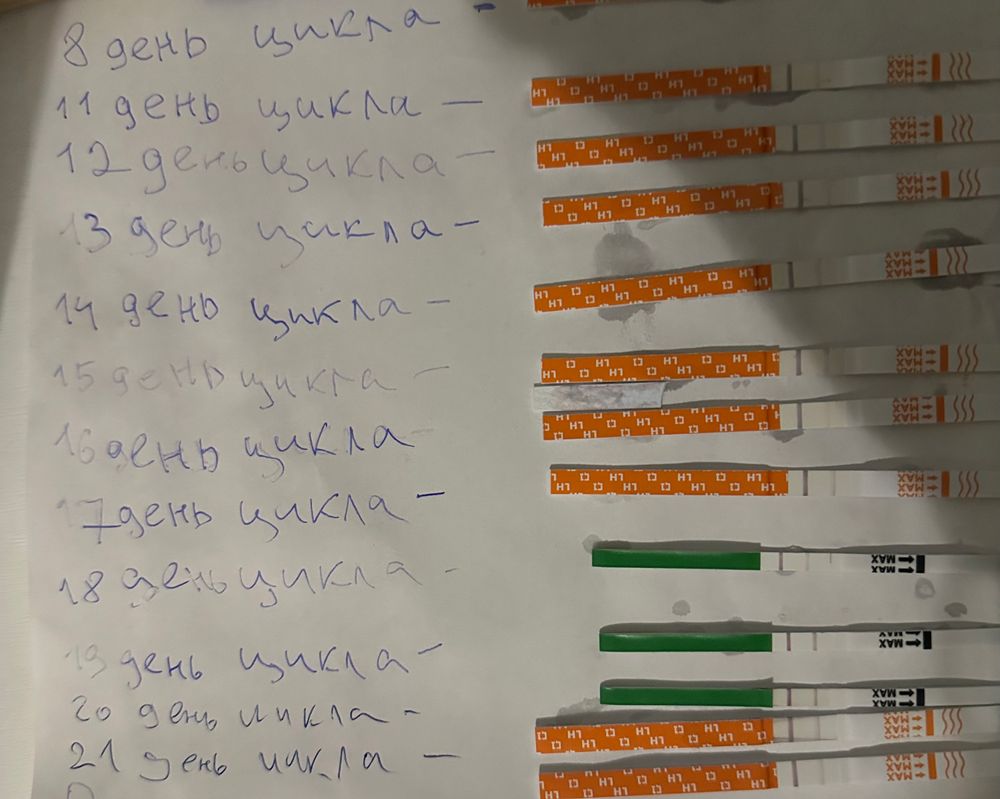 8 день цикла -
11 день цикла -
12 день цикла -
13 день цикла -
14 день цикла -
15 день цикла -
16 день цикла
17 день цикла -
18 день цикла -
MAX
19 день цикла -
MAX
20 день цикла -
MAX
21 день цикла -